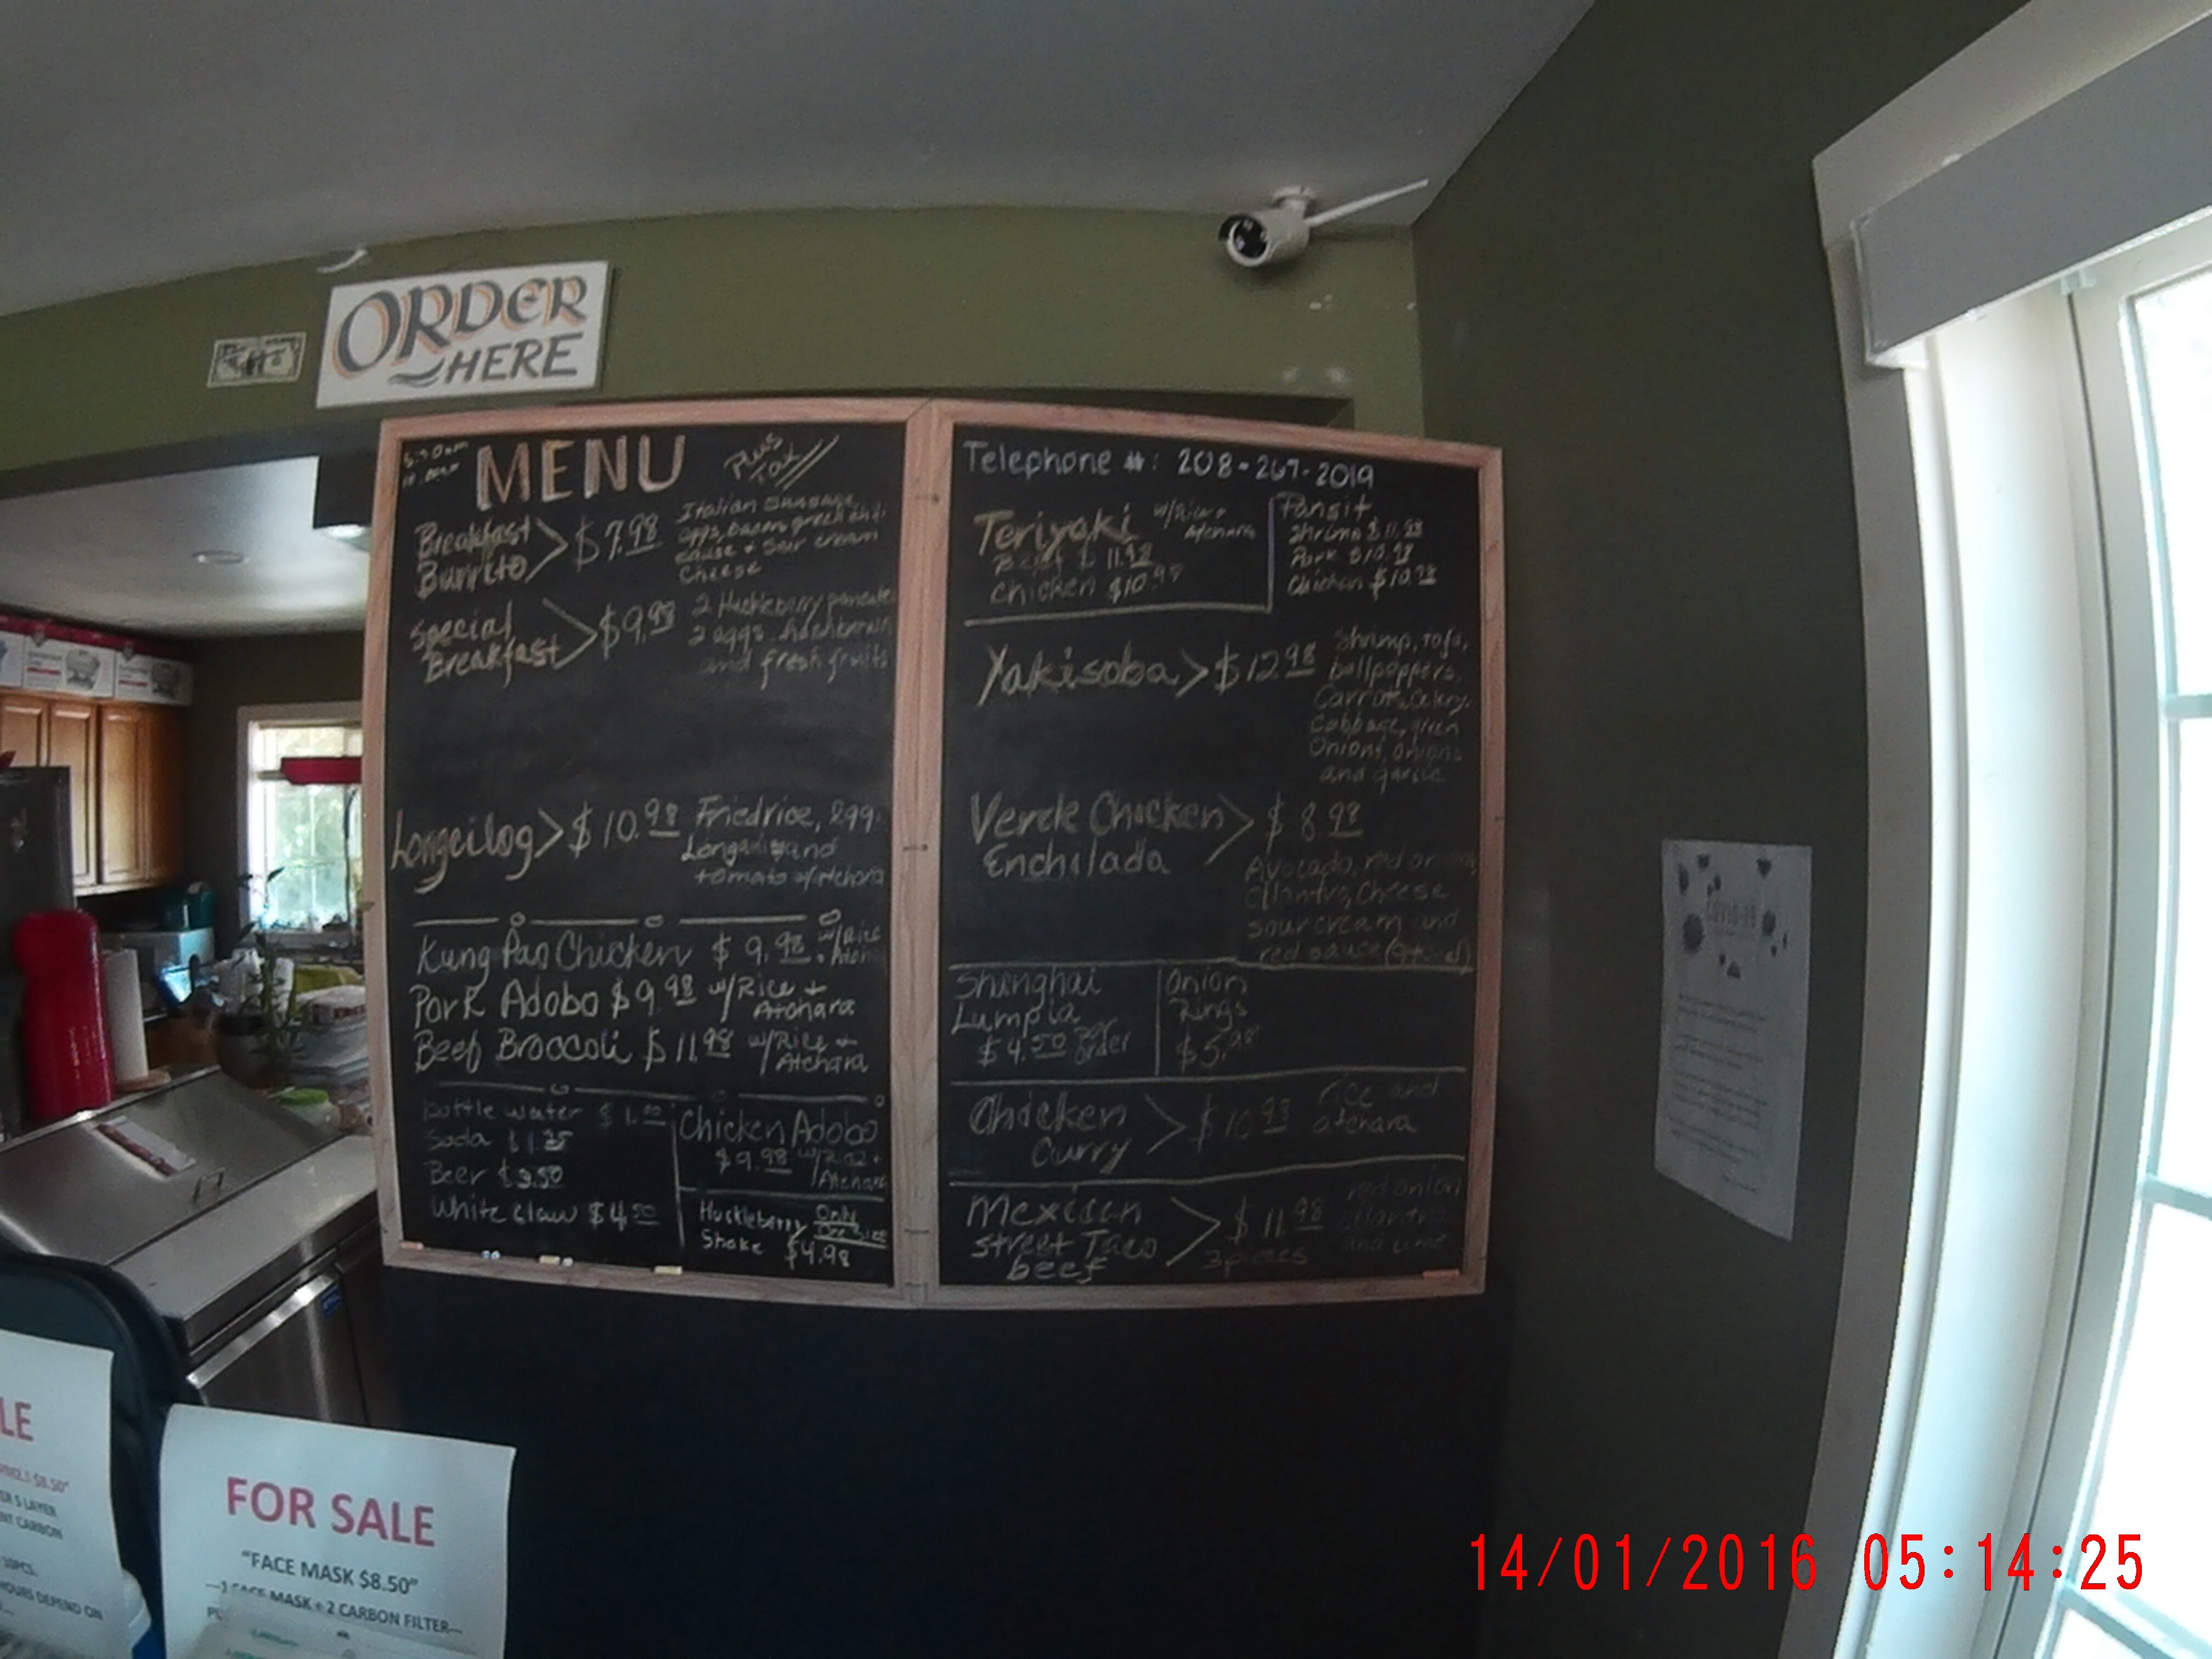 ORDER
HERE
MENU
Plus
Tax
Breakfast
Burrito
$7.98
Italian Sausage,
eggs, bacon, green chili
sauce + sour cream
cheese
Special
Breakfast
$9.98
2 Huckleberry pancake
2 eggs, hashbrown
and fresh fruits
Longcilog
$10.98
Friedrice, egg
tomato w/Atchara
Kung Pao Chicken $9.98 w/Rice
Pork Adobo $9.98 w/Rice +
Atchara
Beef Broccoli $11.98 w/Rice +
Atchara
bottle water $1.00
Soda $1.25
Beer $3.50
White claw $4.50
Chicken Adobo
$9.98 w/Rice +
Atchara
Huckleberry
Shake
Only
One Size
$4.98
Telephone #: 208-267-2019
Teriyaki
w/Rice +
Atchara
Beef $11.98
chicken $10.98
Pansit
Shrimp $11.98
Pork $10.98
Chicken $10.98
Yakisoba
$12.98
Shrimp, tofu,
bellpeppers,
Carrots, Celery,
Cabbage, green
Onions, onions
and garlic
Verde Chicken
Enchilada
$8.98
Avocado, red onions
cilantro, Cheese
sour cream and
red sauce
Shanghai
Lumpia
$4.50 per
order
Onion
Rings
$5.98
Chicken
Curry
$10.98
rice and
atchara
Mexican
street Taco
beef
$11.98
3 pieces
red onion
cilantro
and lime
LE
ER 5 LAYER
NT CARBON
10PCS.
HOURS DEPEND ON
FOR SALE
"FACE MASK $8.50"
—1 FACE MASK + 2 CARBON FILTER—
14/01/2016 05:14:25